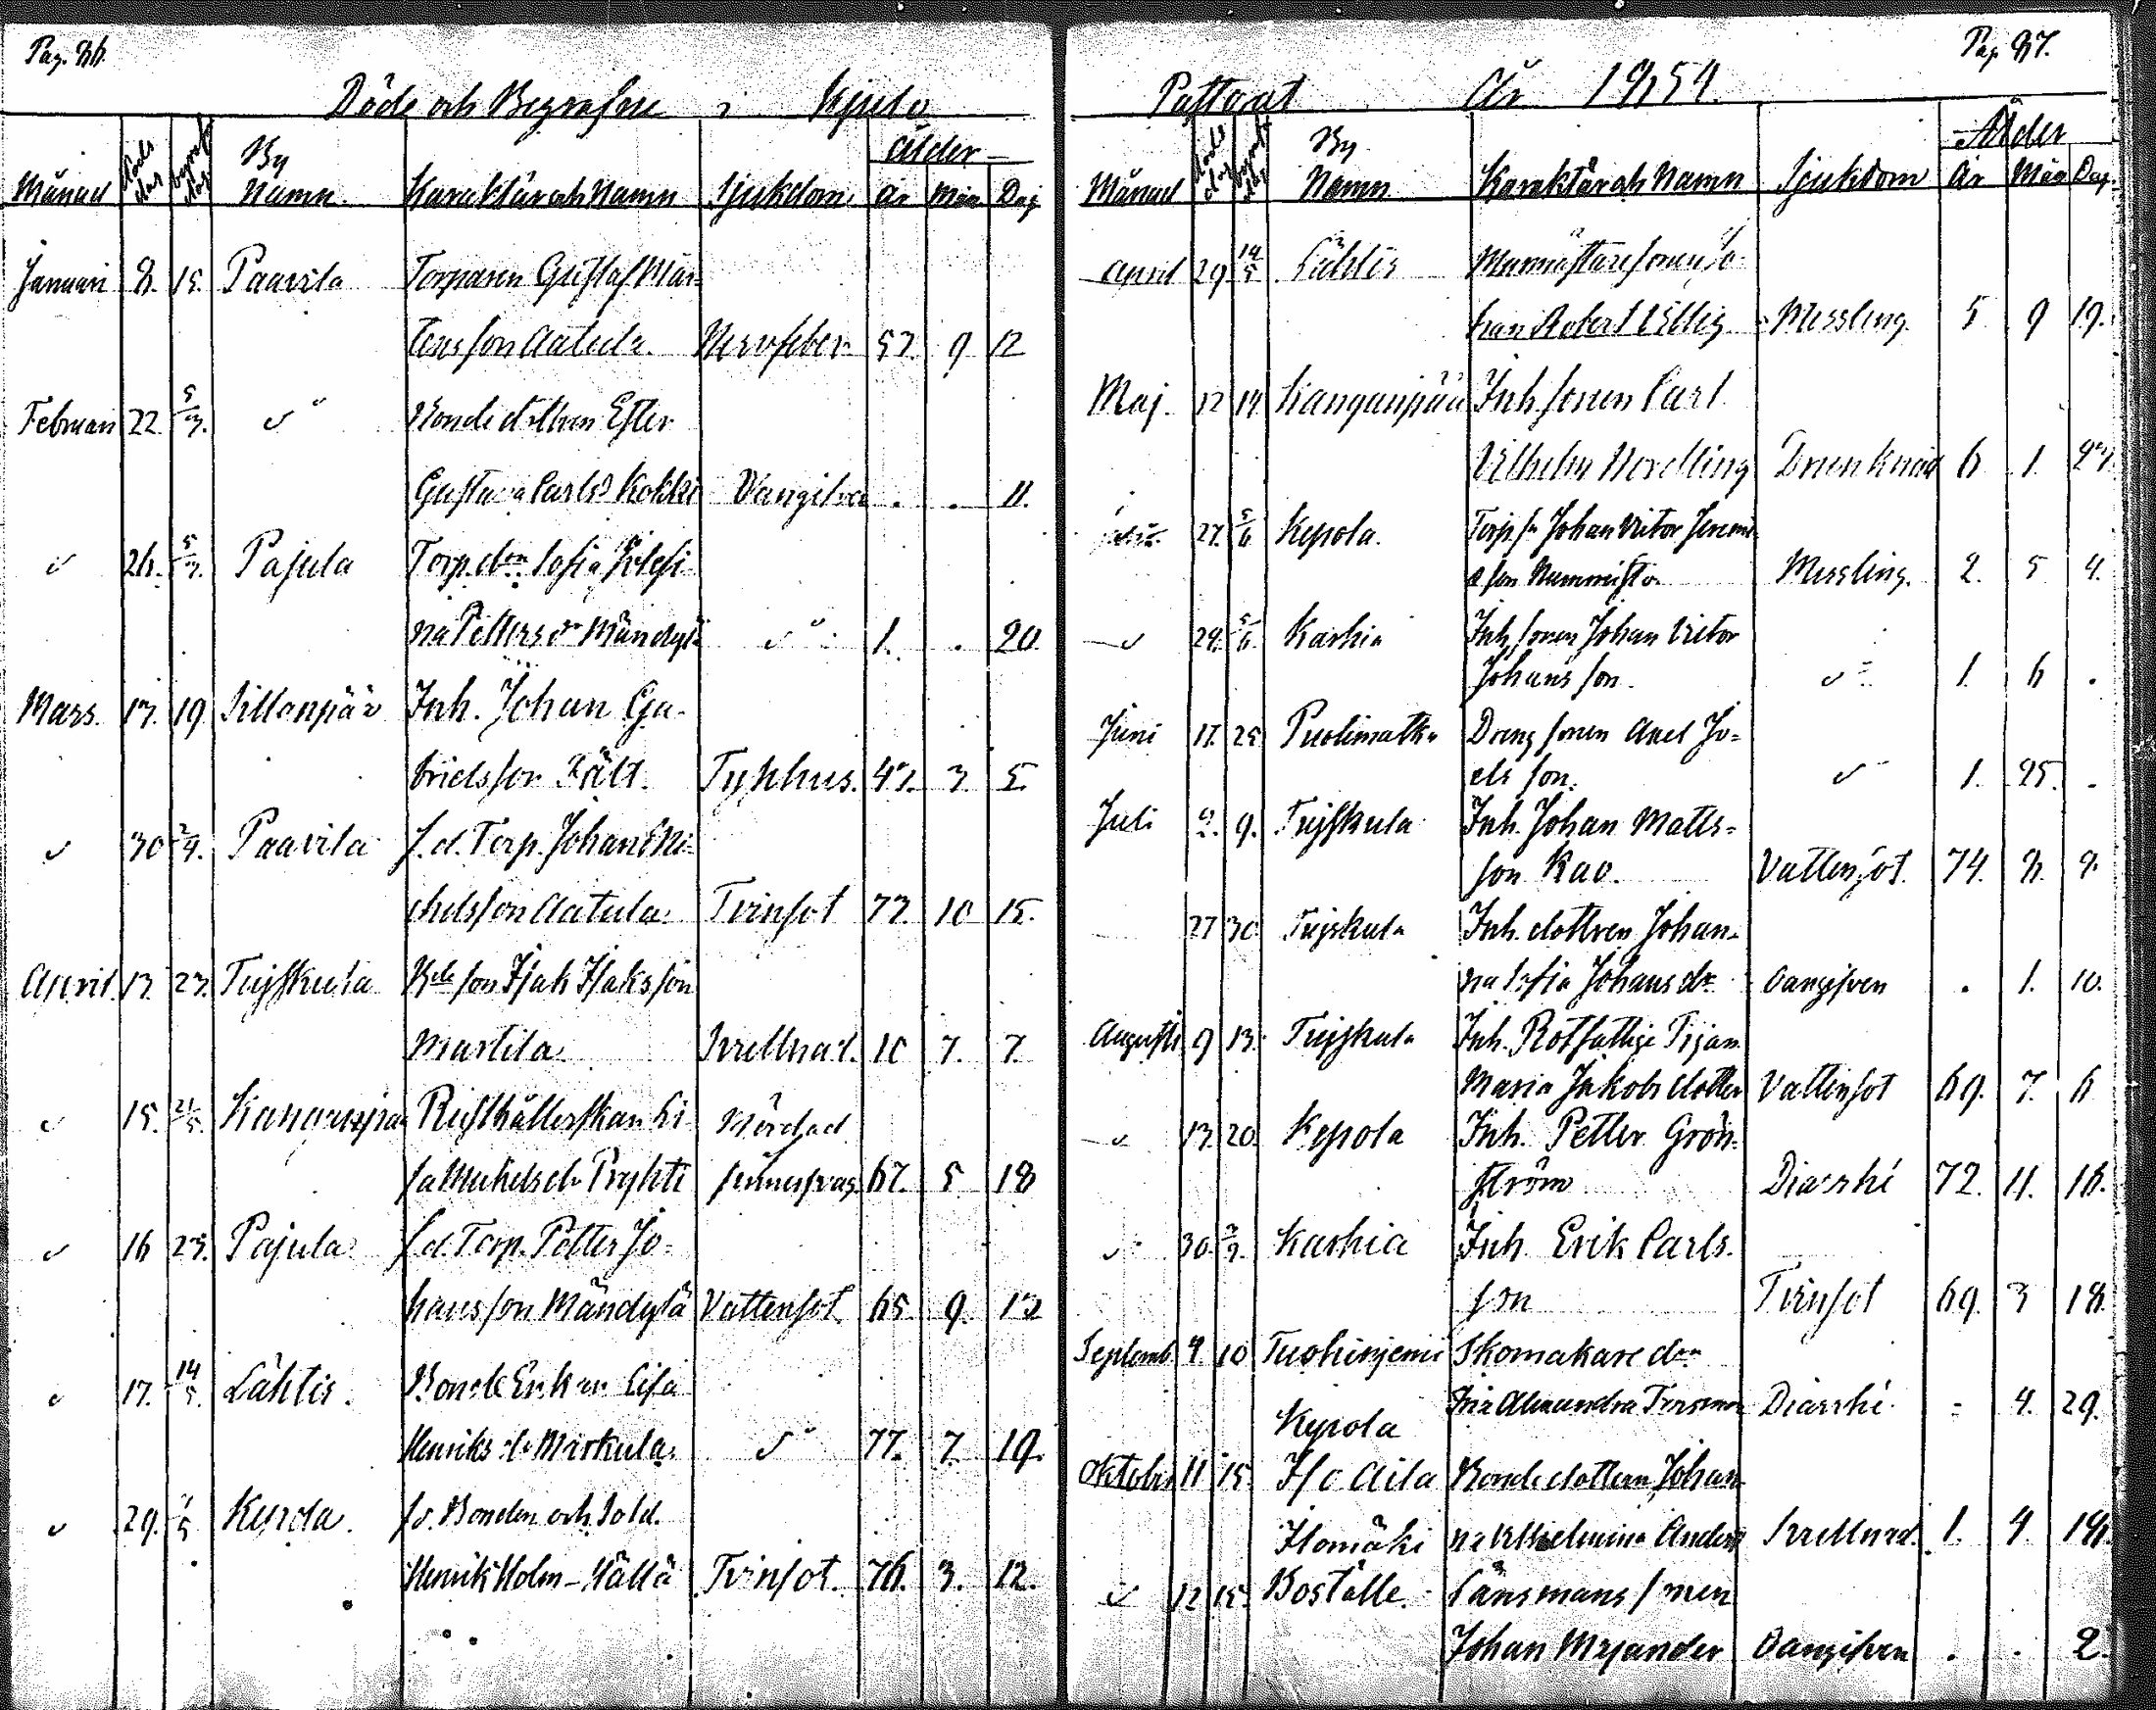 Pag. 86.
Döde och Begrafne i Kjulo
Ålder
Månad döds dag begrafn dag By Namn Karaktär och Namn Sjukdom År Mån Dag
Januari 8. 15. Paavila Torparen Gustaf Mår=
tensson Aatula. Nervfeber 57. 9 12
Februari 22. 5/3. Bonde dottren Ester
Gustava Carlsd Kokki Oangifven . . 11.
26. 5/3. Pajula Torp. d:n Sofia
na Petters dr Mändylä 1. . 20.
Mars. 13. 19 Sillanpää Inh. Johan Ga-
brielsson Fält. Typhus. 47. 3 5.
30 2/4. Paavila f. d. Torp. Johan Mi=
chelsson Aatula. Tvinsot 73. 10 15.
April. 13. 23. Tujskula B:de son Isak Isaksson
Martila Svullnad. 10 7. 7.
15. 21/5. Kanganpää Rusthållerskan Li
sa Michels dr Pryhti Mördad sinnessvag. 67. 5 18
16 23. Pajula f. d. Torp. Petter Jo=
hansson Mändylä Vattensot 65. 9. 13
17. 14/5. Lähtis. Bonde Enkan Lisa
Henriks dr Markula. 77. 7. 19.
29. 5 Kepola. f. Bonden och Sold.
Henrik Holm-Hällä Tvinsot. 76. 3. 12.
Pag. 87.
Pastorat År 1854.
Ålder
Månad döds dag begrafn dag By Namn Karaktär och Namn Sjukdom År Mån Dag.
April 29. 14/5 Lähtis Murmästare sonen Jo-
han Robert Messling. 5 9 19.
Maj. 12 14 Kanganpää Inh. sonen Carl
Vilhelm Nordling Drunknad 6 1. 23
27. 5/6 Kepola. Torp. sn Johan Victor Jeremi
a son Nummisto. Messling. 2. 5 4.
29. 5/6. Karhia Inh. sonen Johan Victor
Johans son. 1. 6 .
Juni 17. 25 Puolimatka Dreng sonen Axel Jo=
els son. 1. 25. .
Juli 2. 9. Tujskula Inh. Johan Matts=
son Kav. Vattensot. 74. 8.
27 30 Tujskula Inh. dottren Johan-
na Sofia Johans dr Oangifven . 1. 10.
Augusti 9 13. Tujskula Inh. Rotfattige Pigan
Maria Jakobs dotter Vattensot 69. 7. 6
13. 20. Kepola Inh. Petter Grön-
ström Diarrhé 72. 11. 16.
30. 3/9. Karhia Inh. Erik Carls-
son Tvinsot 69. 3 18.
Septemb. 10 Tuohiniemi Skomakare d:n
Kepola Alexandra Diarrhé. - 4. 29.
Oktober 11 15. Iso Aila Bonde dottren Johan-
Ilomäki na Vilhelmina Anders Svullnad. 1. 4 18.
12 15. Boställe. Länsmans sonen
Johan Mesander Oangifven . . 2.